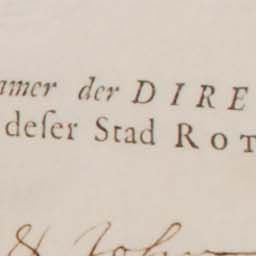 amer der DIRE
deſer Stad ROT
& Joh